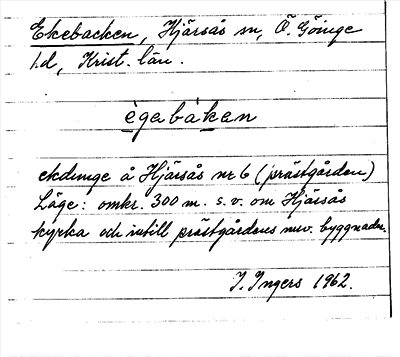 Ekebacken, Hjärsås sn, Ö. Göinge
h.d, Krist. län.
ègabàkan
ekdunge å Hjärsås nr 6 (prästgården)
Läge: omkr. 300 m. s.v. om Hjärsås
kyrka och intill prästgårdens nuv. byggnader.
I. Ingers 1962.